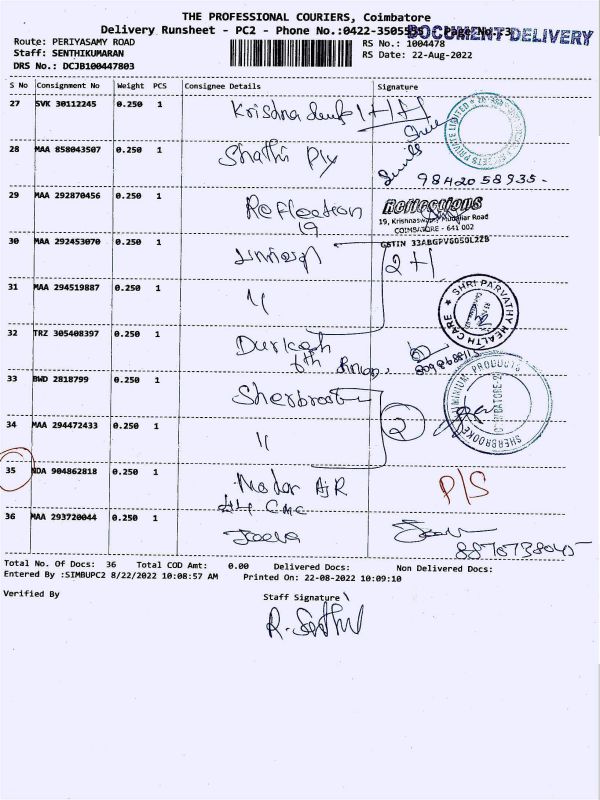 THE PROFESSIONAL COURIERS, Coimbatore
Delivery Runsheet - PC2 - Phone No.:0422-3505535 Page No.:3
DOCUMENT DELIVERY
Route: PERIYASAMY ROAD
RS No.: 1004478
Staff: SENTHIKUMARAN
RS Date: 22-Aug-2022
DRS No.: DCJB100447803
S No Consignment No Weight PCS Consignee Details Signature
27 SVK 30112245 0.250 1 Krishna
28 MAA 858043507 0.250 1 Shathi Ply
9842058935-
29 MAA 292870456 0.250 1 Reflection
19
Reflections
19, Krishnaswamy Mudaliar Road
COIMBATORE - 641 002
GSTIN 33ABGPV6050L2ZB
30 MAA 292453070 0.250 1 2+1
31 MAA 294519887 0.250 1 "
SHRI PARVATHY HEALTH CARE
32 TRZ 305408397 0.250 1 Durkash
33 BWD 2818799 0.250 1 Sherbrooke
SHERBROOKE ALUMINIUM PRODUCTS
34 MAA 294472433 0.250 1 " 2
35 NDA 904862818 0.250 1 Nodar AJR P/S
44 CMC
36 MAA 293720044 0.250 1 Jeeva
8870738045
Total No. Of Docs: 36 Total COD Amt: 0.00 Delivered Docs: Non Delivered Docs:
Entered By :SIMBUPC2 8/22/2022 10:08:57 AM Printed On: 22-08-2022 10:09:10
Verified By Staff Signature
R. Senthil